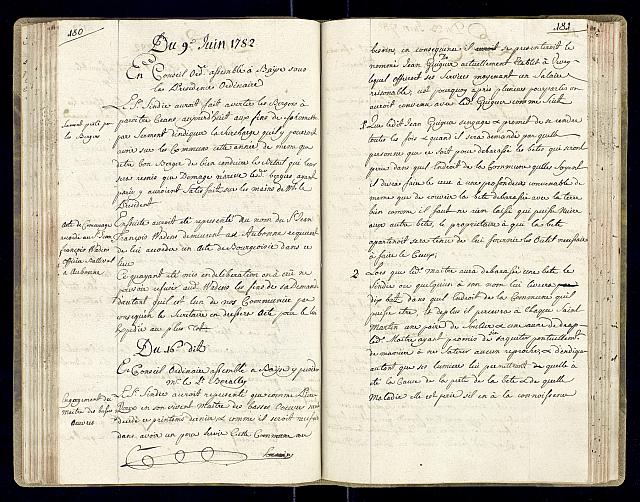 180
Du 9e Juin 1782
En Conseil Ord. assemblé à Baÿse sous
la Présidence Ordinaire
Serment prêté par
les Bergers
Le Sr. Sindic auroit fait avertir les Bergers à
paroitre Ceans aujourd'huÿ aux fins de solemniser
par Serment d'indiquer la surcharge qu'il y pouroit
avoir sur les Communs cette année de même que
d'etre bon Berger de bien conduire le Bétail qui leur
sera remis que Domage n'arrive lesd. bergers ayant
paru y auroient satisfait sur les mains de Mr. le
President
Acte de Communage
accordé au Sr. Jean
François Widens
Officier Baillival
à Aubonne
Ensuitte auroit été representé au nom du Sr. Jean
François Widens demeurant à Aubonne requerant
de lui accorder un acte de Bourgeoisie dans ce
lieu
Ce qui ayant été mis en deliberation on a crû ne
pouvoir refuser aud. Widens les fins de sa demande
d'autant qu'il est l'un de nos Communiers par
consequent le Secretaire en dressera Acte pour le lui
Expedier au plus tot.
Du 16e dit
En Conseil Ordinaire assemblé à Baÿse y presidé
Mr. le Lt.
Engagement du
Maitre des basses
Oeuvres
Le Sr. Sindic auroit representé que comme
en son vivant Maitre des basses Oeuvres
decédé ce printems dernier & comme il seroit necess.
d'en avoir un pour servir Cette Commune au
181
besoin, en consequence il se presenteroit le
nommé Jean Guiguer actuellement Etablit à
lequel offriroit ses services moyenant un Salaire
raisonable, c'est pourquoy après plusieurs pourparlés on
auroit convenu avec led. Guiguer comme suit
1o. Que ledit Jean Guiguer s'engage & promet de se rendre
toutes les fois & quand il sera demandé par quelle
personne que ce soit pour debarasser les betes qui seront
peries dans ledroit de la Commune qu'elles soyent
il devra faire le creux à une profondeur convenable de
meme que de couvrir la bete debarassée avec la terre
bien comme il faut ne rien laisser qui puisse nuire
aux autres betes, le proprietaire à qui la bete
apartenoit sera tenu de lui fournir les Outils necessaire
à faire le Creux;
2 Lors que led. maitre aura debarassé une bete le
Sindic ou quelqu'un à son nom lui livrera
dix batz dans quel endroit de la Commune qu'il
puisse etre, et de plus il percevra à chaque Saint
Martin une paire de Souliers & une aune de drap
led. Maitre ayant promis de s'aquiter ponctuellement
de maniere à ne s'attirer aucun reproche, & d'indiquer
autant que ses lumieres lui permettront de quelle a
eté la Cause de la perte de la bete & de quelle
Maladie elle est perie s'il en a la connoissance